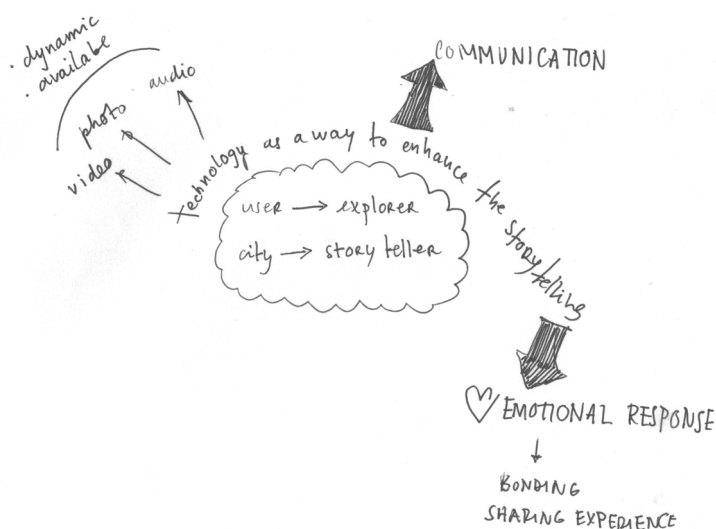 . dynamic
. available
audio
photo
video
COMMUNICATION
technology as a way to enhance the storytelling
user → explorer
city → story teller
♡ EMOTIONAL RESPONSE
↓
BONDING
SHARING EXPERIENCE